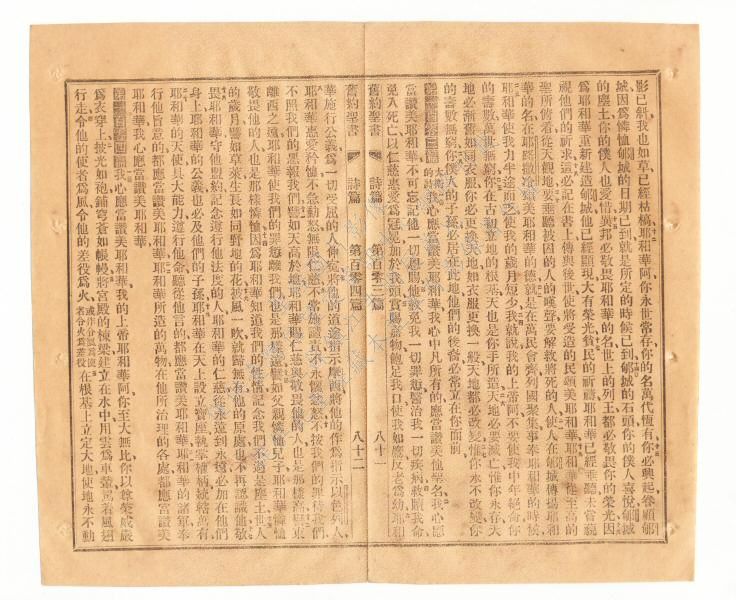 影已斜我也如草已經枯槁耶和華阿你永世常存你的名萬代恆有你必興起眷顧郇
城因爲憐恤郇城的日期已到就是所定的時候已到郇城的石頭你的僕人喜悅郇城
的塵土你的僕人也愛惜異邦必敬畏耶和華的名世上的列王都必敬畏你的榮光因
爲耶和華重新建造郇城他已經顯現大有榮光貧民的祈禱耶和華已經垂聽未嘗藐
視他們的祈求這必記在書上傳與後世使將受造的民頌美耶和華耶和華從至高的
聖所俯看從天觀地要垂聽被囚的人的嘆聲要解救將死的人使人在郇城傳揚耶和
華的名在耶路撒冷頌美耶和華的德就是在萬民會齊列國聚集事奉耶和華的時候
耶和華使我力半途而乏使我的歲月短少我就說我的上帝阿不要使我中年絕命你
的壽數萬世無窮你在古初立地的根基天也是你手所造天地必要滅亡惟你永存天
地必漸舊如同衣服你必更換天地如衣服更換一般天地都必改變惟你永不改變你
的壽數無窮你僕人的子孫必居在此地他們的後裔必常立在你面前
第一百零三篇 大衛的詩 我心應當讚美耶和華我心中凡所有的應當讚美他聖名我心應
當讚美耶和華不可忘記他一切恩賜他赦免我一切罪愆醫治我一切疾病救贖我命
免入死亡以仁慈惠愛爲冠冕加於我頭賞賜嘉物飽足我口使我如鷹反老爲幼耶和
舊約聖書 詩篇 第百零三篇 八十一
舊約聖書 詩篇 第百零四篇 八十二
華施行公義爲一切受屈的人伸冤將他的道途指示摩西將他的作爲指示以色列人
耶和華惠愛矜恤不急動怒無限仁慈不常施譴責不永懷忿怒不按我們的罪待我們
不照我們的惡報我們譬如天高於地耶和華賜仁慈與敬畏他的人也是那樣高極東
離西之遠耶和華使我們的罪愆離我們也是那樣遠譬如父親憐恤兒子耶和華憐恤
敬畏他的人也是那樣憐恤因爲耶和華知道我們的性情記念我們不過是塵土世人
的歲月譬如草萊生長如同野地的花被風一吹就歸無有他的原處也不再認識他敬
畏耶和華守他盟約記念遵行他法度的人耶和華的仁慈從永遠到永遠必加在他們
身上耶和華的公義也必及他們的子孫耶和華在天上設立寶座執掌權柄統轄萬有
耶和華的天使具大能力遵行他命聽從他言的都應當讚美耶和華耶和華的諸軍奉
行他旨意的都應當讚美耶和華耶和華所造的萬物在他所治理的各處都應當讚美
耶和華我心應當讚美耶和華
第一百零四篇 我心應當讚美耶和華我的上帝耶和華阿你至大無比你以尊榮威嚴
爲衣穿上披光如袍鋪穹蒼如帳幔將宮殿的棟樑建立在水中用雲爲車輦駕着風翅
行走令他的使者爲風令他的差役爲火 或作令風爲使者令火爲差役 在根基上立定大地使地永不動